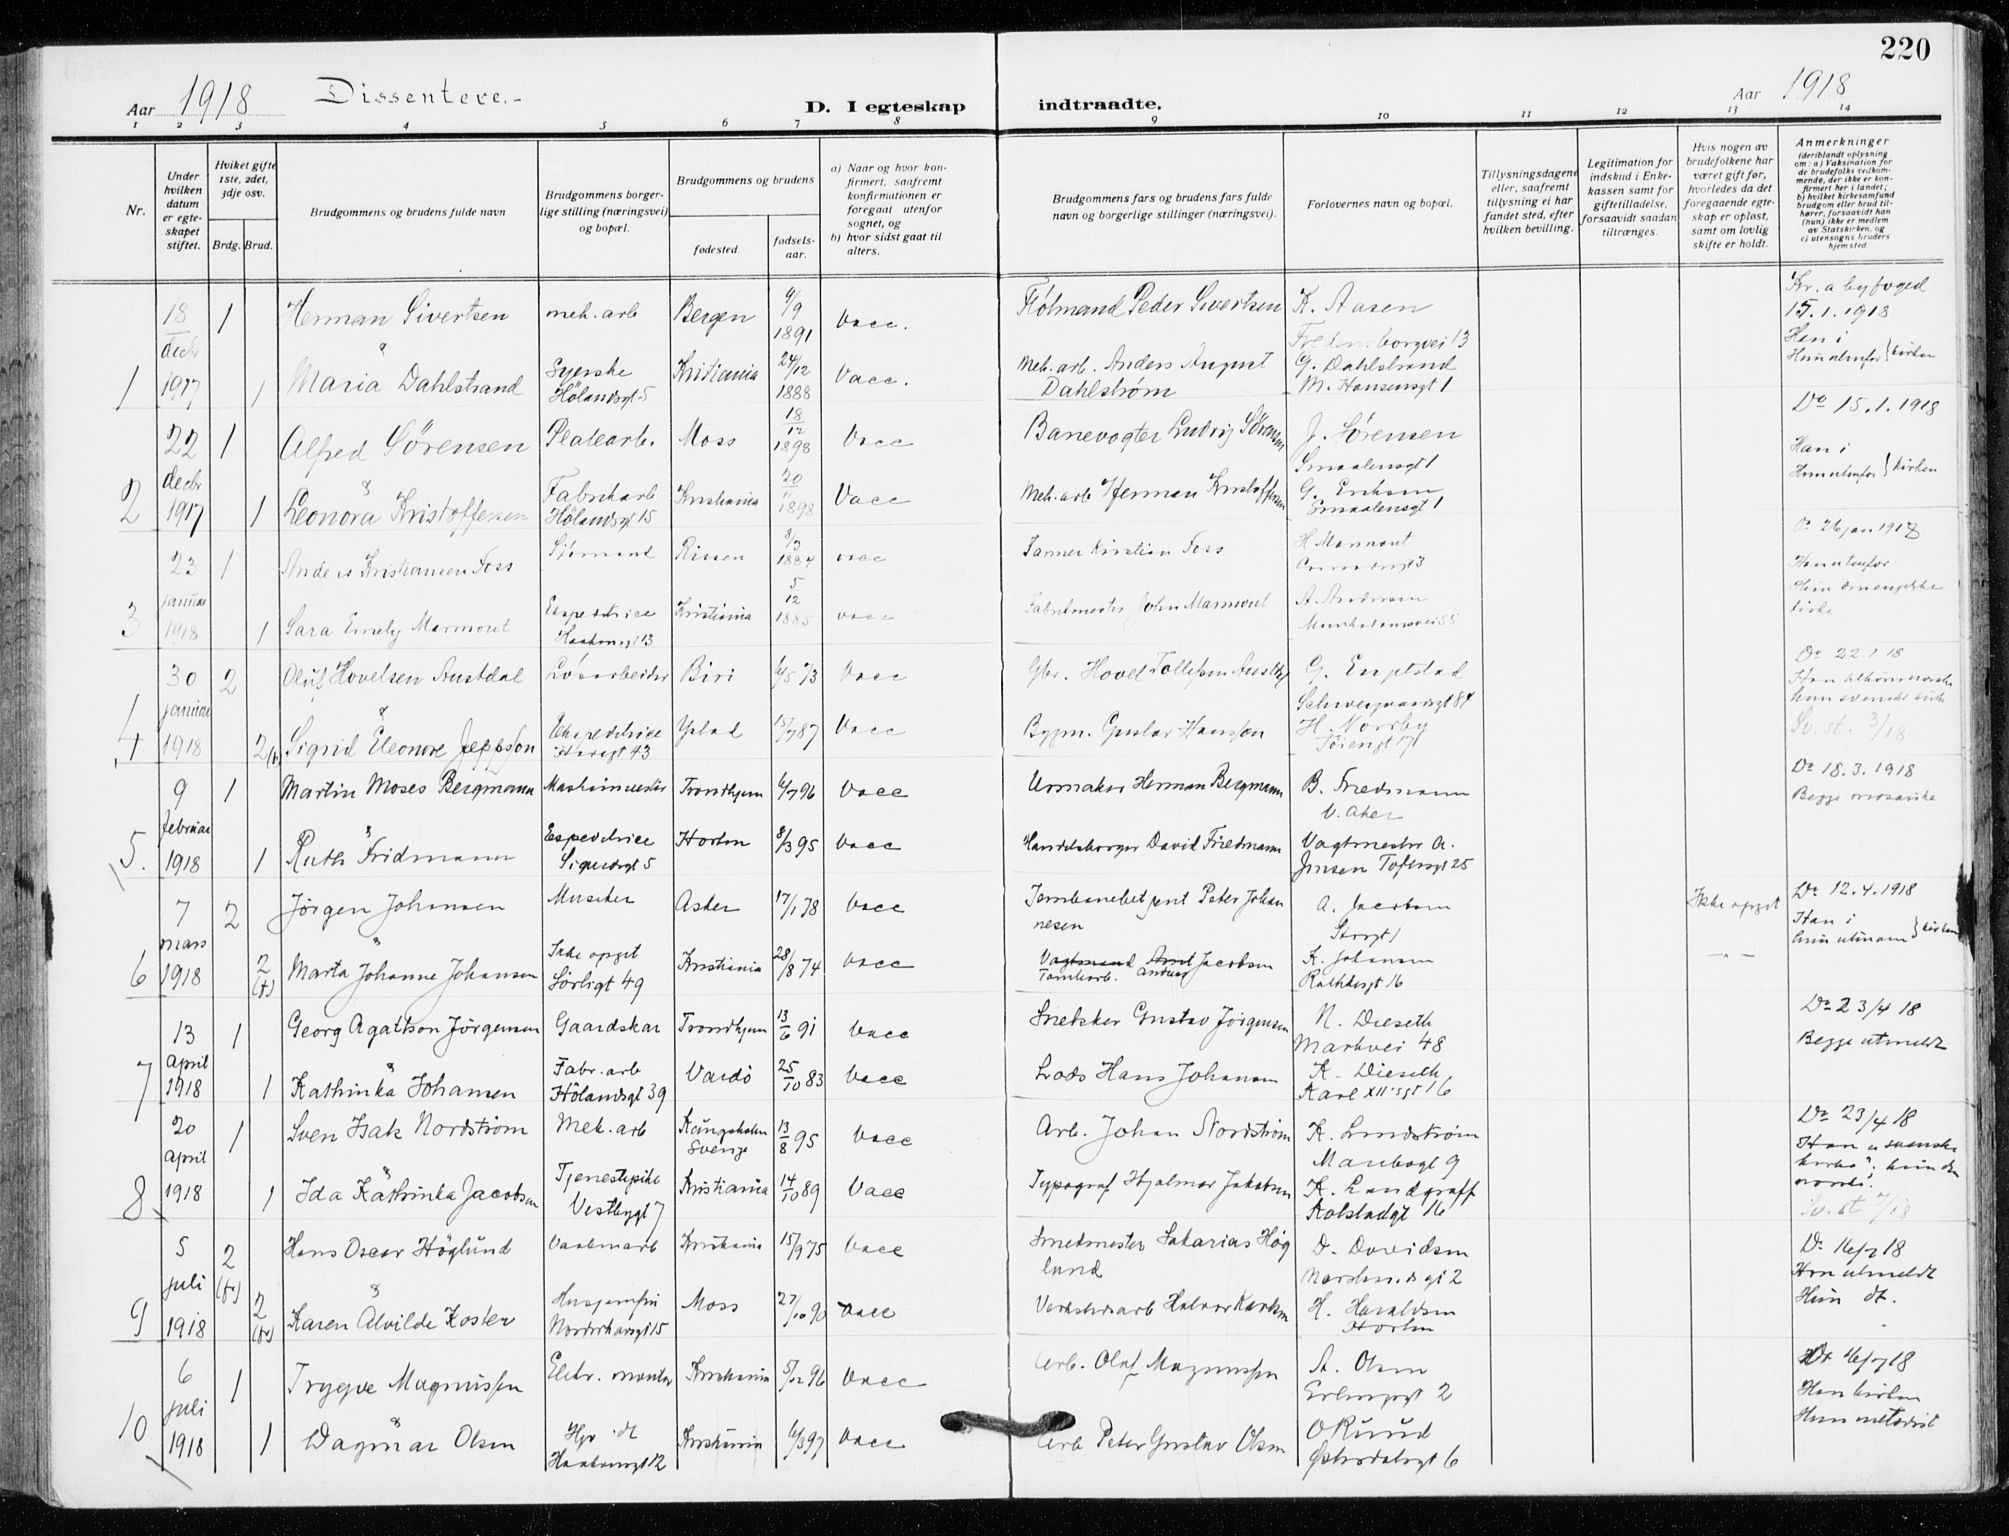 220
Aar 1918 Dissentere.-
D. I egteskap indtraadte.
Aar 1918
1 2 3 4 5 6 7 8 9 10 11 12 13 14
Nr.
Under hvilken datum er egteskapet stiftet.
Hviket gifte 1ste, 2det, 3dje osv.
Brdg. Brud.
Brudgommens og brudens fulde navn
Brudgommens borgerlige stilling (næringsvei) og bopæl.
Brudgommens og brudens
fødested.
fødselsaar.
a) Naar og hvor konfirmert, saafremt konfirmationen er foregaat utenfor sognet, og
b) hvor sidst gaat til alters.
Brudgommens fars og brudens fars fulde navn og borgerlige stillinger (næringsvei).
Forlovernes navn og bopæl.
Tillysningsdagene eller, saafremt tillysning ei har fundet sted, efter hvilken bevilling.
Legitimation for indskud i Enkekassen samt for giftetilladelse, forsaavidt saadan tiltrænges.
Hvis nogen av brudefolkene har været gift før, hvorledes da det foregaaende egteskap er opløst, samt om lovlig skifte er holdt.
Anmerkninger
(deriblandt oplysning om: a) Vaksination for de brudefolks vedkommende, der ikke er konfirmert her i landet;
b) hvilket kirkesamfund brudgom eller brud tilhører, forsaavidt han (hun) ikke er medlem av Statskirken, og
c) utensogns bruders hjemsted
1
18 decbr 1917
1 Herman Sivertsen mek. arb Bergen 6/9 1891 Vacc. Peder Sivertsen K. Aasen
Fredensborgvei 13
Kr.a byfoged 15.1.1918
&
1 Maria Dahlstrand Syerske Hølandsgt 5 Kristiania 24/12 1888 Vacc. Mek. arb. Anders August Dahlstrøm G. Dahlstrand
M. Hansensgt 1
2
22 decbr 1917
1 Alfred Sørensen Platearb. Moss 18/12 1898 Vacc Banevogter Ludvig Sørensen J. Sørensen
Smaalensgt 1
Do 15.1.1918
Han i
Hun utenfor } kirken
&
1 Leonora Kristoffersen Fabrikarb Hølandsgt 15 Kristiania 20/11 1898 Vacc Mek. arb Herman Kristoffersen G. Eriksen
Smaalensgt 1
3
23 januar 1918
1 Anders Kristiansen Foss Sjømand Rissen 8/3 1884 vacc Kristian Foss H Marmont
Do 26 jan 1918
Han utenfor
1 Sara Emely Marmont Expeditrice Kristiania 5/12 1885 vacc Fabrikmester John Marmont A. Andersen
Munkedamsvei 55
4
30 januar 1918
2 Oluf Hovelsen Austdal Løsarbeider Biri 6/5 73 Vacc Gbr. Hovel Tollefsen G. Engelstad
Schweigaardsgt 84
Do 22.1.18
&
2 Sigrid Eleonore Jeppson Expeditrice Ystad 15/7 87 Vacc Bygm. Gustav Hansson H. Norrby
Tøiengt 17
Sv. st. 3/18
5.
9 februar 1918
1 Martin Moses Bergmann Maskinmester Trondhjem 6/7 96 Vacc Urmaker Herman Bergmann B. Friedmann
V. Aker
Do 18.3.1918
Begge mosaiske
&
1 Ruth Fridmann Expeditrice Sigurdsgt 5 Horten 8/3 95 Vacc Handelsborger David Friedmann Vagtmester A. Jensen Toftesgt 25
6
7 mars 1918
2 Jørgen Johansen Musiker Asker 17/1 78 Vacc Peter Johannesen A. Jacobsen
Storgt 1
Ikke opget
Do 12.4.1918
Han i
hun utenom } kirken
&
2 (f) Marta Johanne Johansen Ikke opget Sørligt 49 Kristiania 28/8 74 Vacc Vagtmand Jacobsen
Tomtearb. Andreas K. Johansen
Rathkesgt 16
7
13 april 1918
1 Georg Agatton Jørgensen Gaardskar Trondhjem 13/6 91 Vacc Snekker Gustav Jørgensen N. Dieseth
Markvei 48
Do 23/4 18
Begge utmeldt
&
1 Kathinka Johansen Fabr. arb Hølandsgt 39 Vardø 25/10 83 Vacc Lods Hans Johansen K. Dieseth
Karl XII'sgt 16
8
20 april 1918
1 Sven Isak Nordstrøm Mek. arb Kungsholm Sverige 13/8 95 Vacc Arb. Johan Nordstrøm K. Lindstrøm
Maribogt 9
Do 23/4 18
&
1 Ida Kathinka Jacobsen Tjenestepike Vestbygt 7 Kristiania 14/10 89 Vacc Typograf Hjalmar Jakobsen K. Landgraff
Kolstadgt 16
9
5 juli 1918
2 (f) Hans Oscar Höglund Vaabenarb Kristiania 15/9 75 Vacc Smedmester Sakarias Høglund D. Davidsen
Do 16/7 18
Han utmeldt
Hun do.
&
2 (f) Karen Alvilde Koster Husjomfru Moss 27/10 90 Vacc Verkstedsarb Halvor Karlsen H. Haraldsen
Horten
10
6 juli 1918
1 Trygve Magnussen Elektr. montør Kristiania 5/12 96 Vacc Arb. Olaf Magnussen A. Olsen
Erlingsgt 2
Do 16/7 18
Han kirken
Hun metodist
&
1 Dagmar Olsen Haakonsgt 12 Kristiania 6/3 97 Vacc Arb Peter Gustav Olsen O Ruud
6